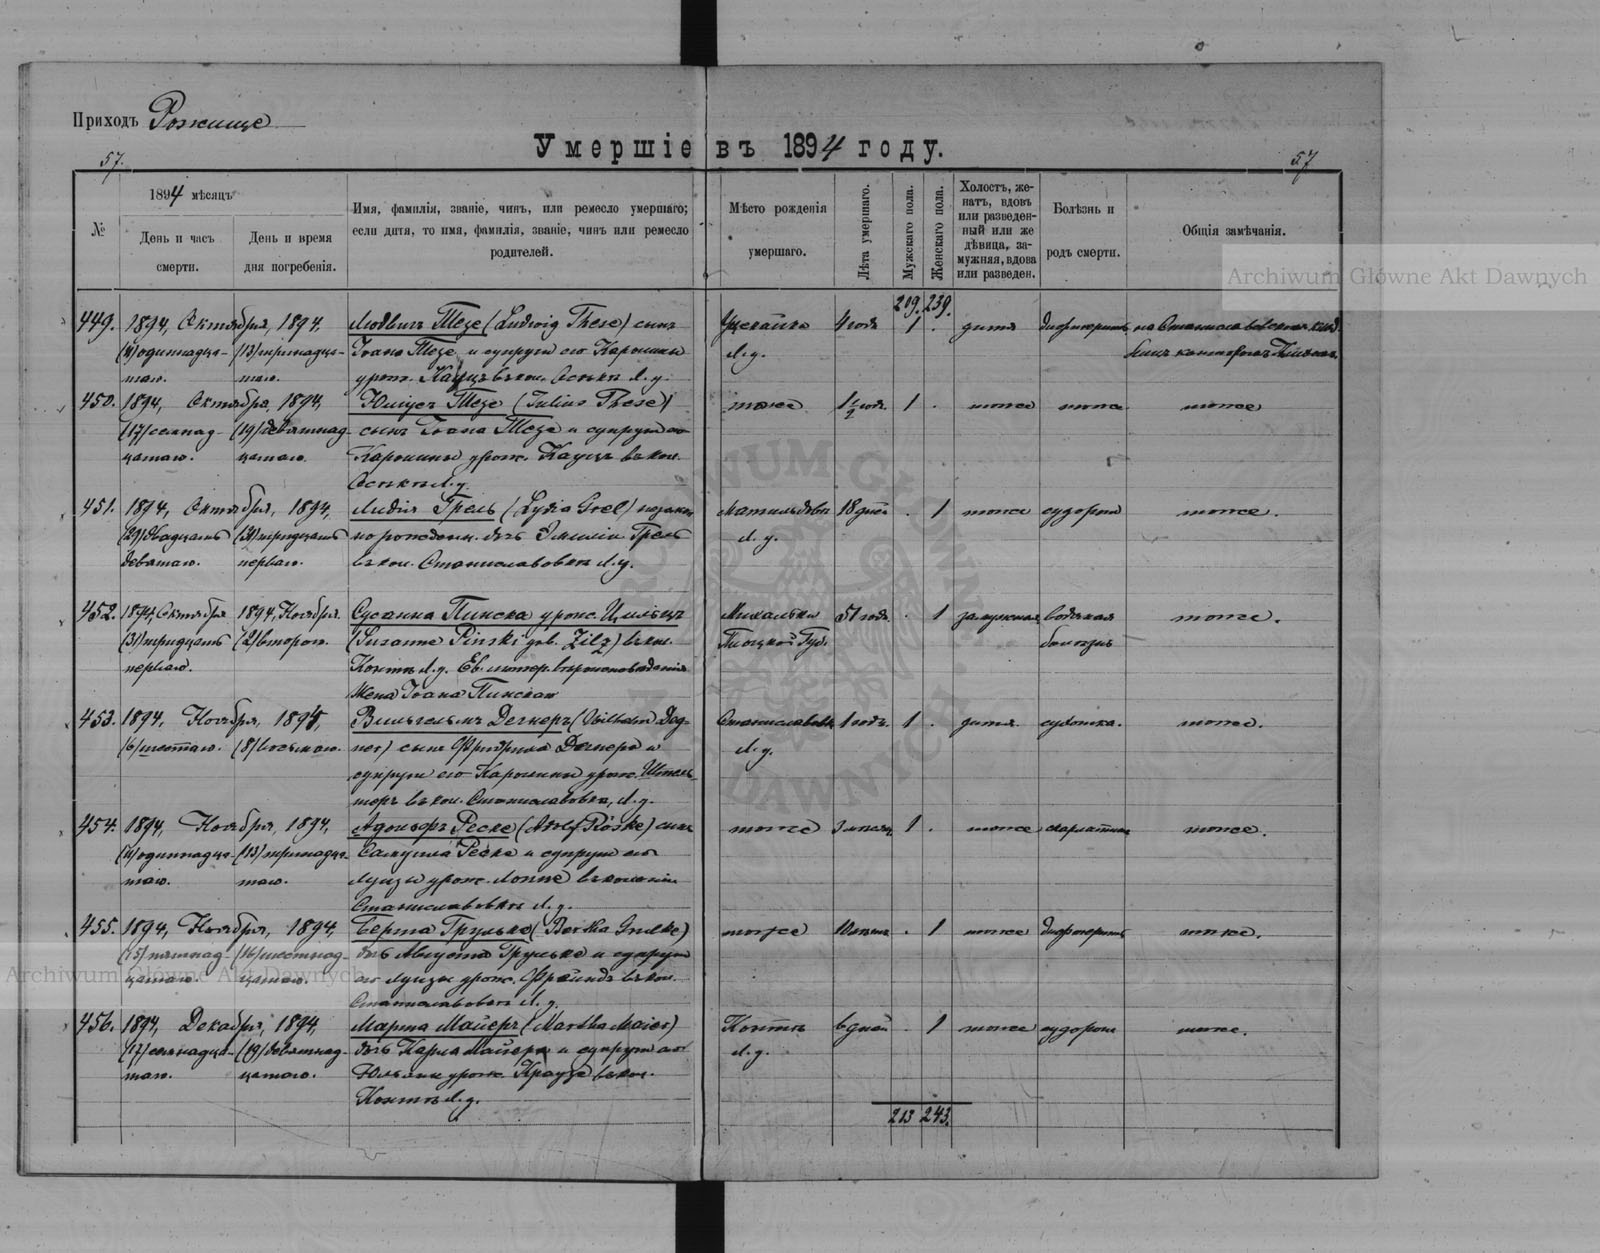 Приходъ Рожище
Умершіе въ 1894 году.
57.
57
№
1894 мѣсяцъ
День и часъ
смерти.
День и время
дня погребенія.
Имя, фамилія, званіе, чинъ, или ремесло умершаго;
если дитя, то имя, фамилія, званіе, чинъ или ремесло
родителей.
Мѣсто рожденія
умершаго.
Лѣта умершаго.
Мужскаго пола.
Женскаго пола.
Холостъ, же-
натъ, вдовъ
или разведен-
ный или же
дѣвица, за-
мужняя, вдова
или разведен.
Болѣзнь и
родъ смерти.
Общія замѣчанія.
Archiwum Główne Akt Dawnych
209. 239.
449. 1894, Октября, 1894. Людвигъ Тезе (Ludwig These) сынъ 4 года 1 . дитя дифтеритъ
(11) одиннадца- (13) тринадца- Іоана Тезе и супруги его Каролины Л. у.
таго. таго. урож. въ кол. Л. у.
450. 1894, Октября, 1894, Юліусъ Тезе (Julius These) тоже 1 1/2 года 1 . тоже тоже тоже
(17) семнад- (19) девятнад- сынъ Іоана Тезе и супруги его
цатаго. цатаго. Каролины урож. въ кол.
Л. у.
451. 1894, Октября, 1894, Лидія Грель (Lydia Grel) незакон- 18 дней . 1 тоже судороги тоже.
(29) двадцать (31) тридцать но рожденн. дочь Эмиліи Грель Л. у.
девятаго. перваго. въ кол. Станиславовкѣ Л. у.
452. 1894, Октября 1894, Ноября. Сусанна Пинска урож. Цильцъ 51 годъ . 1 замужняя водяная тоже.
(31) тридцать (2) второго. (Susanne Pinski geb. Zilz) въ кол. Плоцкой Губ. болѣзнь
перваго. Л. у. Ев. лютер. вѣроисповѣданія
жена Іоана Пинскаго
453. 1894, Ноября, 1894, Вильгельмъ Дегнеръ (Wilhelm Deg- Станиславовка 1 годъ 1 . дитя. тоже.
(6) шестаго. (8) восьмаго. ner) сынъ Фридриха Дегнера и Л. у.
супруги его Каролины урож. Штель-
теръ въ кол. Станиславовка, Л. у.
454. 1894, Ноября, 1894, Адольфъ Реске (Adolf Röske) сынъ тоже 1 . тоже скарлатина тоже.
(11) одиннадца- (13) тринадца- Самуила Реске и супруги его
таго. таго. Луизы урож. въ колоніи
Станиславовкѣ Л. у.
455. 1894, Ноября, 1894, Берта Грульке (Bertha Grulke) тоже . 1 тоже дифтеритъ тоже.
(15) пятнад- (16) шестнад- дочь Августа Грульке и супруги
цатаго. цатаго. его Луизы урож. въ кол.
Станиславовкѣ Л. у.
456. 1894, Декабря, 1894, Марта Майеръ (Martha Maier) 6 дней . 1 тоже судороги тоже.
(17) семнадца- (19) девятнад- дочь Карла Майера и супруги его Л. у.
таго. цатаго. Юлианы урож. Краузе въ кол.
Л. у.
213 243.
Archiwum Główne Akt Dawnych
ARCHIWUM GŁÓWNE AKT DAWNYCH